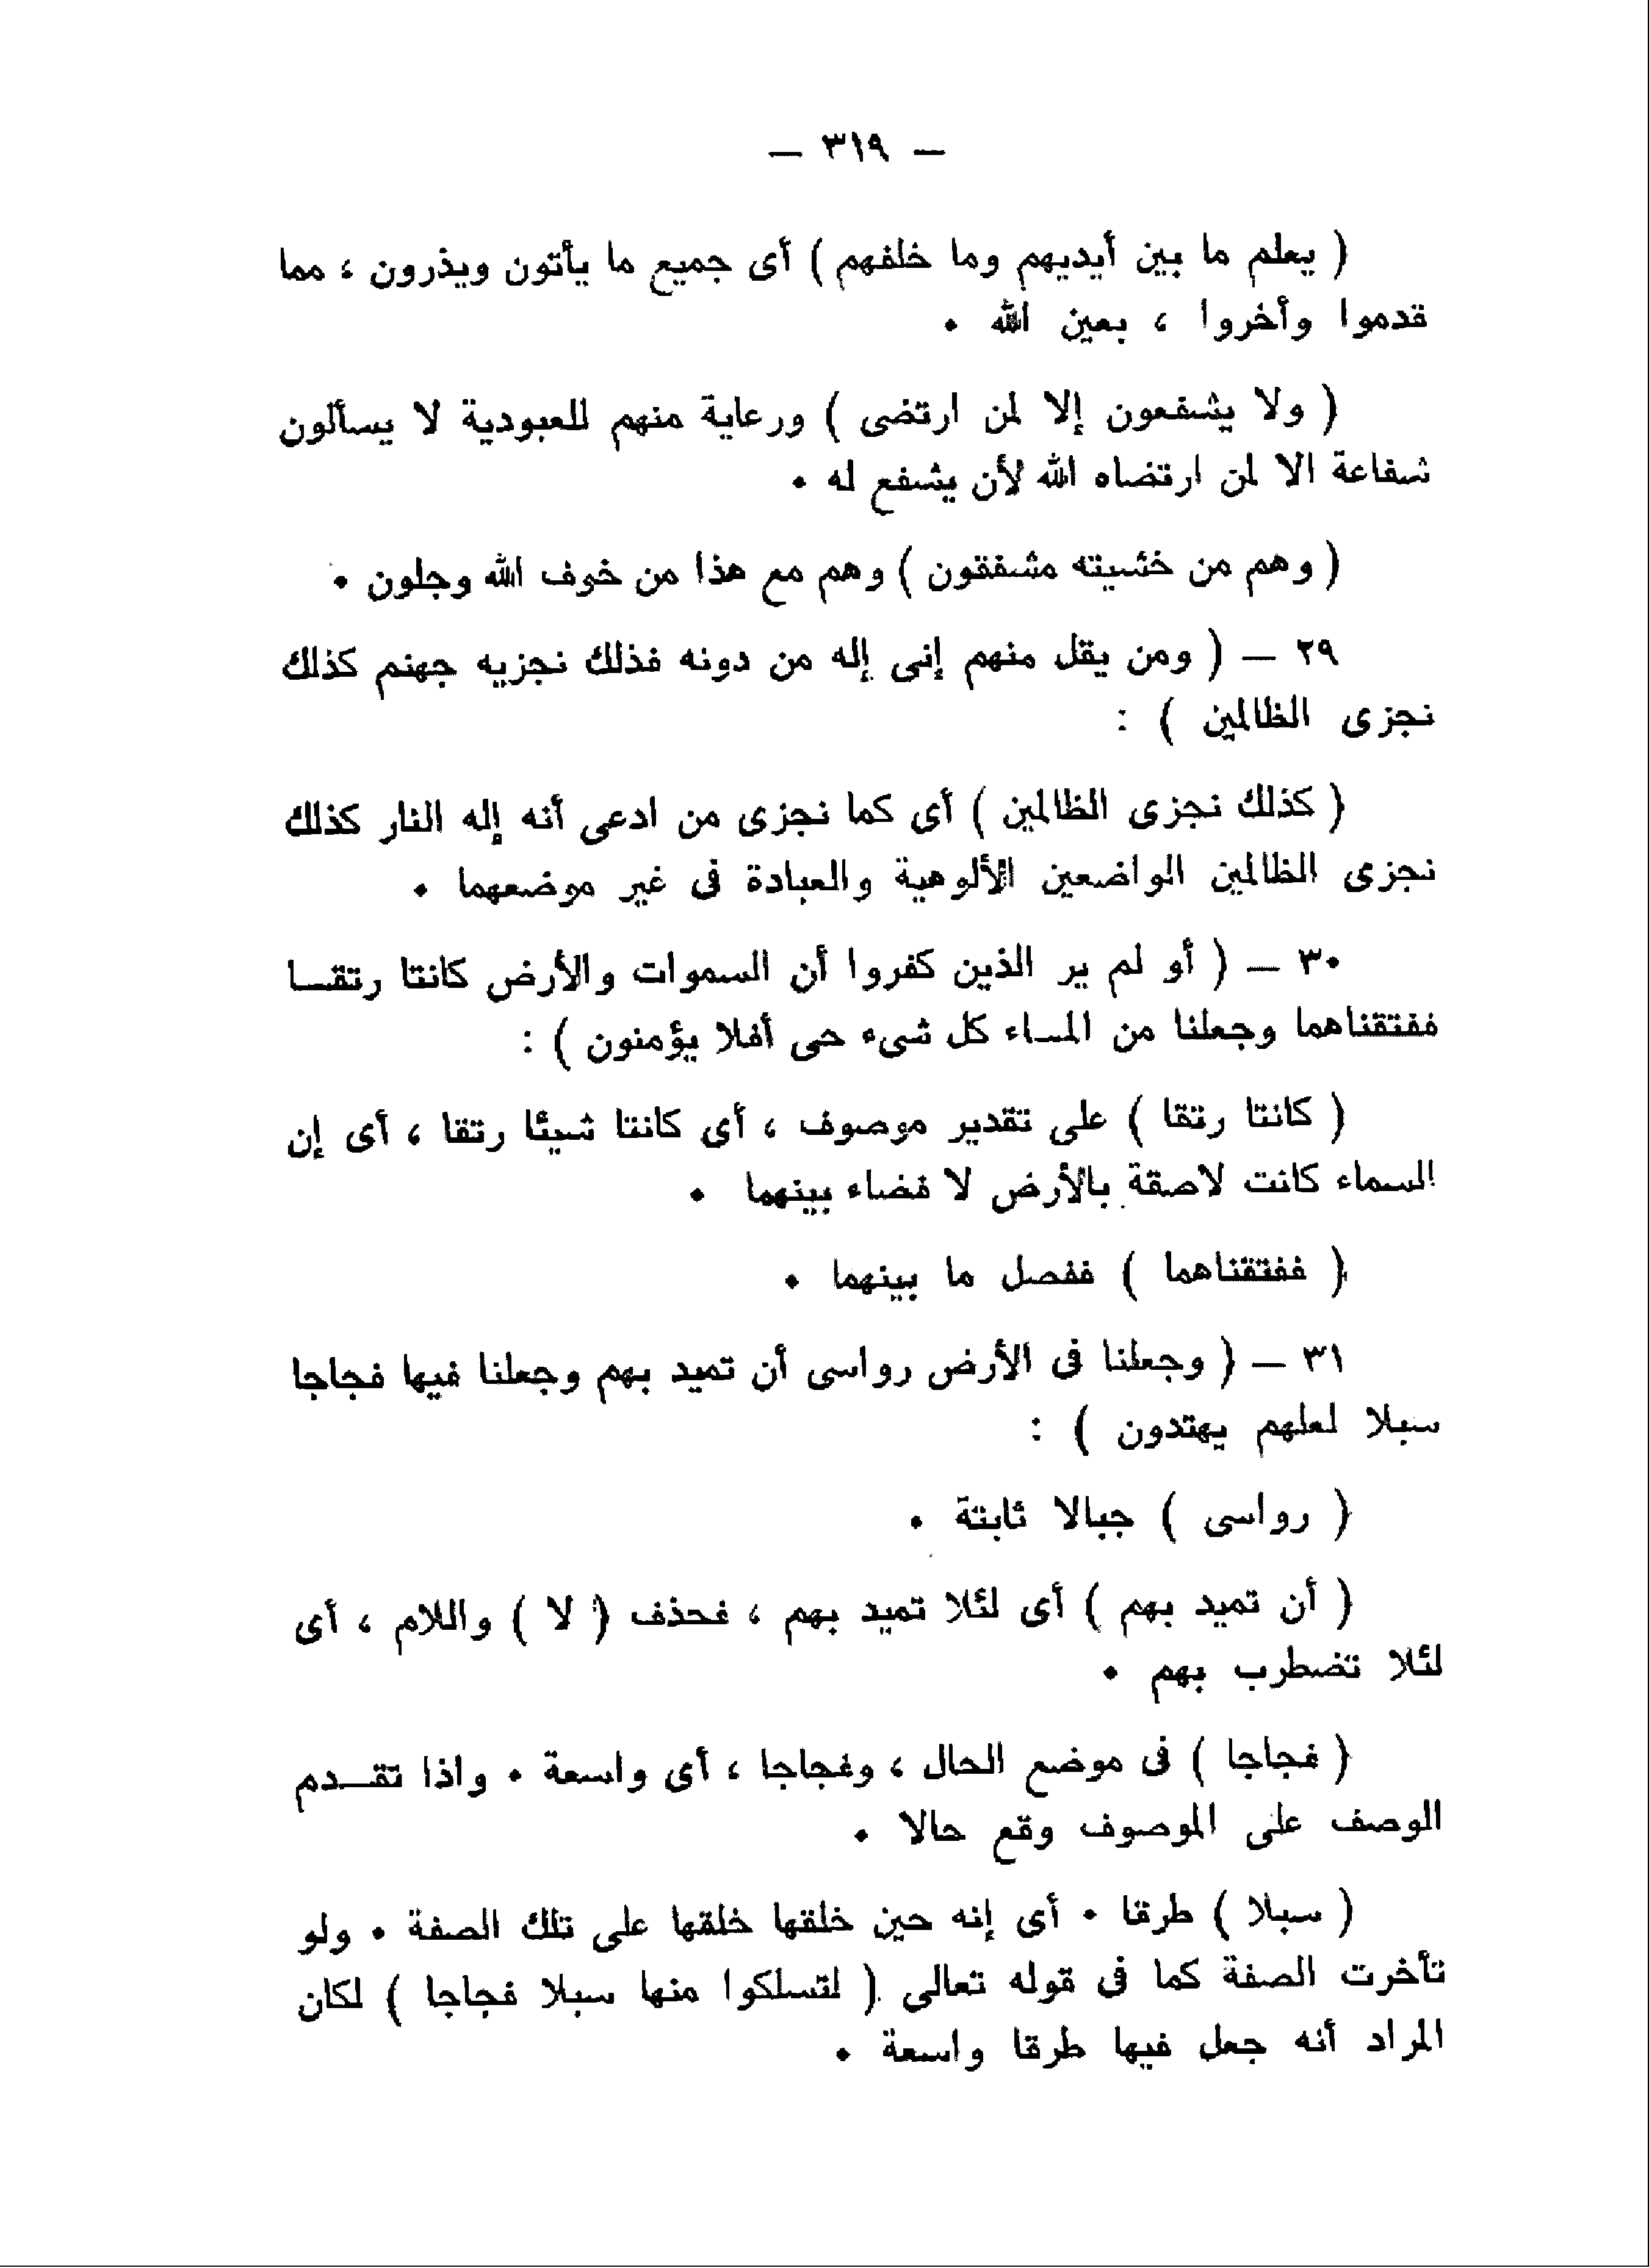 — ٣١٩ —
( يعلم ما بين أيديهم وما خلفهم ) أى جميع ما يأتون ويذرون ، مما
قدموا وأخروا ، بعين الله .
( ولا يشفعون إلا لمن ارتضى ) ورعاية منهم للعبودية لا يسألون
شفاعة الا لمن ارتضاه الله لأن يشفع له .
( وهم من خشيته مشفقون ) وهم مع هذا من خوف الله وجلون .
٢٩ — ( ومن يقل منهم إنى إله من دونه فذلك نجزيه جهنم كذلك
نجزى الظالمين ) :
( كذلك نجزى الظالمين ) أى كما نجزى من ادعى أنه إله النار كذلك
نجزى الظالمين الواضعين الألوهية والعبادة فى غير موضعهما .
٣٠ — ( أو لم ير الذين كفروا أن السموات والأرض كانتا رتقــا
ففتقناهما وجعلنا من المــاء كل شىء حى أفلا يؤمنون ) :
( كانتا رتقا ) على تقدير موصوف ، أى كانتا شيئا رتقا ، أى إن
السماء كانت لاصقة بالأرض لا فضاء بينهما .
( ففتقناهما ) ففصل ما بينهما .
٣١ — ( وجعلنا فى الأرض رواسى أن تميد بهم وجعلنا فيها فجاجا
سبلا لعلهم يهتدون ) :
( رواسى ) جبالا ثابتة .
( أن تميد بهم ) أى لئلا تميد بهم ، فحذف ( لا ) واللام ، أى
لئلا تضطرب بهم .
( فجاجا ) فى موضع الحال ، وفجاجا ، أى واسعة . واذا تقــدم
الوصف على الموصوف وقع حالا .
( سبلا ) طرقا . أى إنه حين خلقها خلقها على تلك الصفة . ولو
تأخرت الصفة كما فى قوله تعالى ( لتسلكوا منها سبلا فجاجا ) لكان
المراد أنه جعل فيها طرقا واسعة .